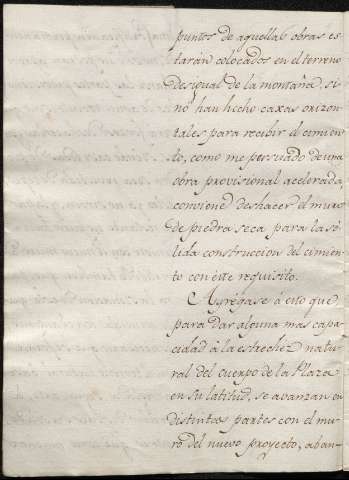 puntos de aquellas obras es-
tarán colocados en el terreno
desigual de la montaña, si
nó han hecho caxas orizon-
tales para recibir el cimien-
to, como me persuado de una
obra provisional acelerada,
conviene deshacer el muro
de piedra seca para la só-
lida construccion del cimien-
to con este requisito.
Agrégase à esto que
para dar alguna mas capa-
cidad à la estrechez natu-
ral del cuerpo de la Plaza
en su latitud, se abanzan en
distintas partes con el mu-
ro del nuevo proyecto, aban-